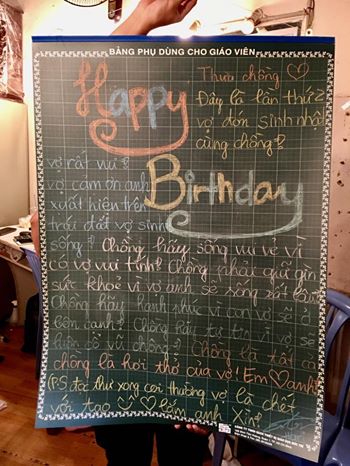 BẢNG PHỤ DÙNG CHO GIÁO VIÊN
Happy
Thưa chồng
Đây là lần thứ 2
vợ đón sinh nhật
cùng chồng?
Birthday
vợ rất vui?
vợ cảm ơn anh
xuất hiện trên
trái đất vợ sinh
sống? Chồng hãy sống vui vẻ vì
có vợ vui tính? Chồng phải giữ gìn
sức khoẻ vì vợ anh sẽ sống rất lâu
Chồng hãy hạnh phúc vì con vợ sẽ ở
bên cạnh? Chồng hãy tự tin vì vợ sẽ
luôn cổ vũ chồng? Chồng là tất cả
chồng là hơi thở của vợ! Em anh!
(P.S đọc thư xong coi thường vợ là chết
với tao lắm anh Xin?